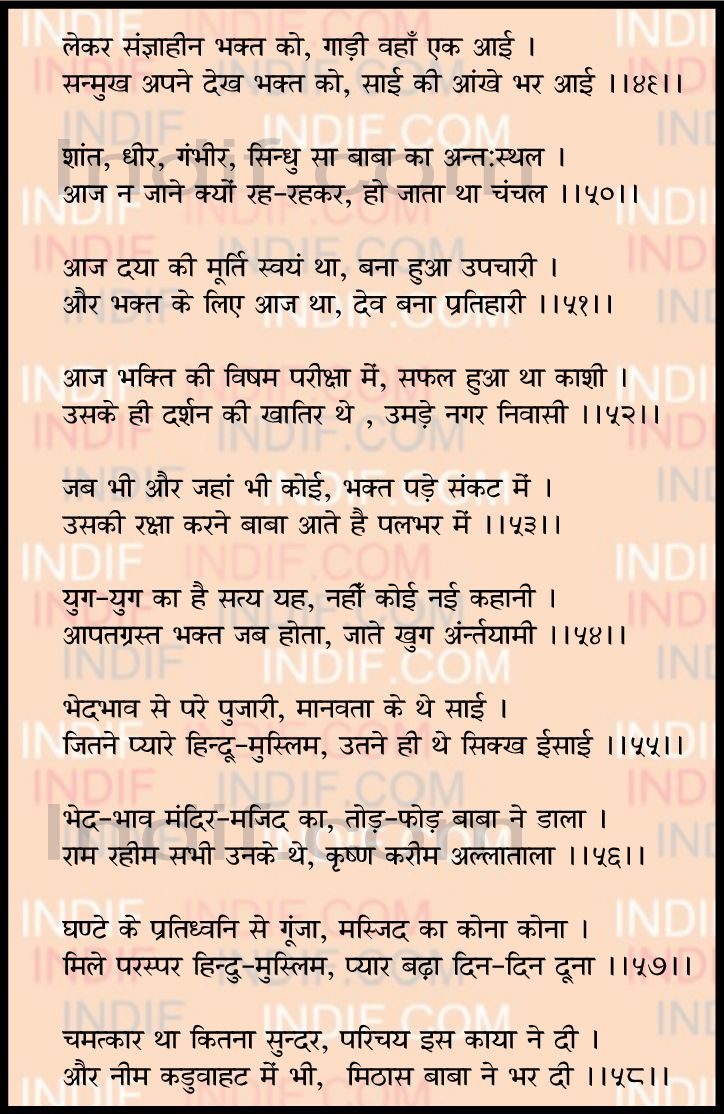 लेकर संज्ञाहीन भक्त को, गाड़ी वहाँ एक आई ।
सन्मुख अपने देख भक्त को, साई की आंखे भर आई ।।४९।।
शांत, धीर, गंभीर, सिन्धु सा बाबा का अन्त:स्थल ।
आज न जाने क्यों रह-रहकर, हो जाता था चंचल ।।५०।।
आज दया की मूर्ति स्वयं था, बना हुआ उपचारी ।
और भक्त के लिए आज था, देव बना प्रतिहारी ।।५१।।
आज भक्ति की विषम परीक्षा में, सफल हुआ था काशी ।
उसके ही दर्शन की खातिर थे , उमड़े नगर निवासी ।।५२।।
जब भी और जहां भी कोई, भक्त पड़े संकट में ।
उसकी रक्षा करने बाबा आते है पलभर में ।।५३।।
युग-युग का है सत्य यह, नहीं कोई नई कहानी ।
आपतग्रस्त भक्त जब होता, जाते खुग अंर्न्तयामी ।।५४।।
भेदभाव से परे पुजारी, मानवता के थे साई ।
जितने प्यारे हिन्दू-मुस्लिम, उतने ही थे सिक्ख ईसाई ।।५५।।
भेद-भाव मंदिर-मजिद का, तोड़-फोड़ बाबा ने डाला ।
राम रहीम सभी उनके थे, कृष्ण करीम अल्लाताला ।।५६।।
घण्टे के प्रतिध्वनि से गूंजा, मस्जिद का कोना कोना ।
मिले परस्पर हिन्दु-मुस्लिम, प्यार बढ़ा दिन-दिन दूना ।।५७।।
चमत्कार था कितना सुन्दर, परिचय इस काया ने दी ।
और नीम कडुवाहट में भी, मिठास बाबा ने भर दी ।।५८।।